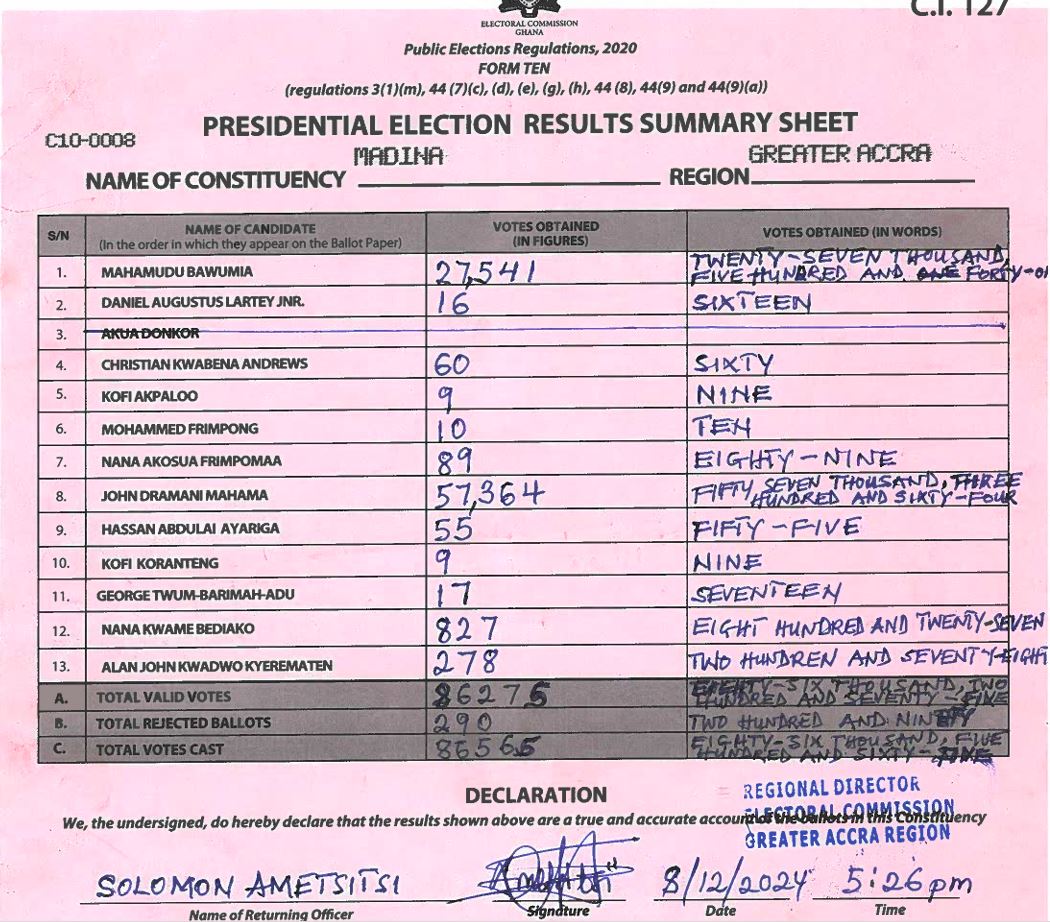 C.I. 127
ELECTORAL COMMISSION
GHANA
Public Elections Regulations, 2020
FORM TEN
(regulations 3(1)(m), 44 (7)(c), (d), (e), (g), (h), 44 (8), 44(9) and 44(9)(a))
C10-0008
PRESIDENTIAL ELECTION RESULTS SUMMARY SHEET
NAME OF CONSTITUENCY MADINA REGION GREATER ACCRA
S/N NAME OF CANDIDATE (In the order in which they appear on the Ballot Paper) VOTES OBTAINED (IN FIGURES) VOTES OBTAINED (IN WORDS)
1. MAHAMUDU BAWUMIA 27,541 TWENTY-SEVEN THOUSAND, FIVE HUNDRED AND ONE FORTY-O
2. DANIEL AUGUSTUS LARTEY JNR. 16 SIXTEEN
3. AKUA DONKOR
4. CHRISTIAN KWABENA ANDREWS 60 SIXTY
5. KOFI AKPALOO 9 NINE
6. MOHAMMED FRIMPONG 10 TEN
7. NANA AKOSUA FRIMPOMAA 89 EIGHTY-NINE
8. JOHN DRAMANI MAHAMA 57,364 FIFTY SEVEN THOUSAND, THREE HUNDRED AND SIXTY-FOUR
9. HASSAN ABDULAI AYARIGA 55 FIFTY-FIVE
10. KOFI KORANTENG 9 NINE
11. GEORGE TWUM-BARIMAH-ADU 17 SEVENTEEN
12. NANA KWAME BEDIAKO 827 EIGHT HUNDRED AND TWENTY-SEVEN
13. ALAN JOHN KWADWO KYEREMATEN 278 TWO HUNDREN AND SEVENTY-EIGHT
A. TOTAL VALID VOTES 86275 EIGHTY-SIX THOUSAND, TWO HUNDRED AND SEVENTY-FIVE
B. TOTAL REJECTED BALLOTS 290 TWO HUNDRED AND NINETY
C. TOTAL VOTES CAST 86565 EIGHTY-SIX THOUSAND, FIVE HUNDRED AND SIXTY-FIVE
DECLARATION
REGIONAL DIRECTOR
ELECTORAL COMMISSION
GREATER ACCRA REGION
We, the undersigned, do hereby declare that the results shown above are a true and accurate account of the ballots in this Constituency
SOLOMON AMETSITSI 8/12/2024 5:26pm
Name of Returning Officer Signature Date Time